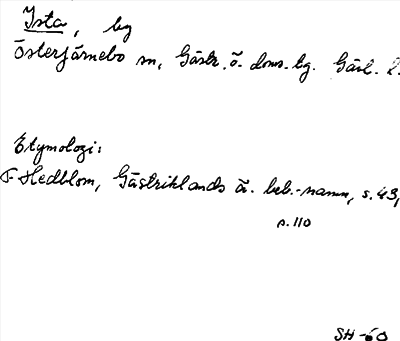 Ista, by
Österfärnebo sn, Gästr. ö. doms.bg. Gävl. l.
Etymologi:
F Hedblom, Gästriklands ä. beb.-namn, s. 43,
s. 110
SH -60